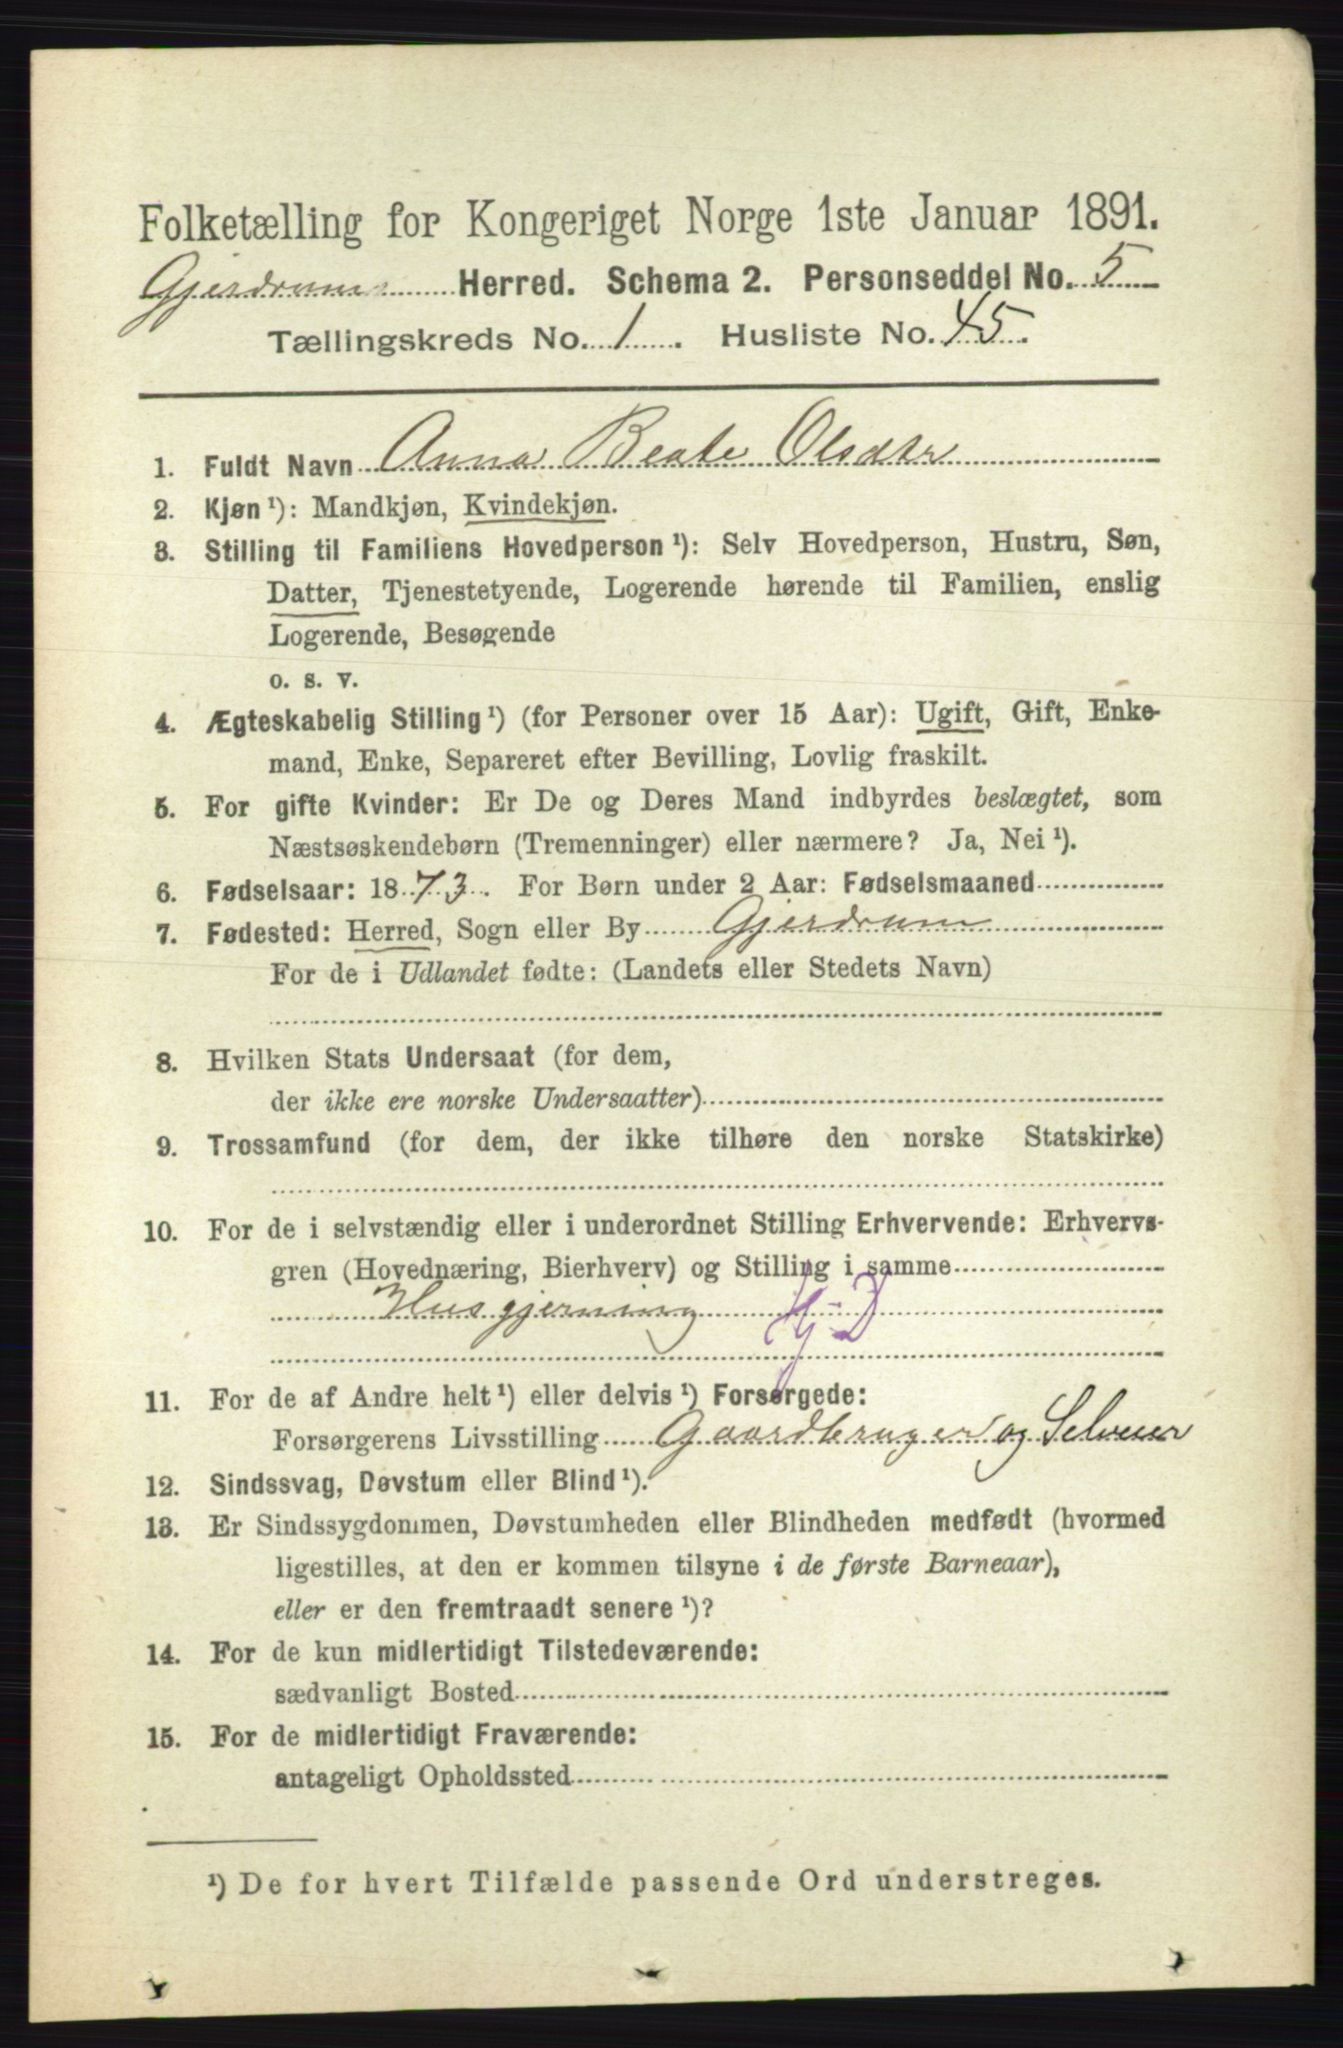 Folketælling for Kongeriget Norge 1ste Januar 1891.
Gjerdrum Herred. Schema 2. Personseddel No. 5
Tællingskreds No. 1. Husliste No. 45.
1. Fuldt Navn Anna Beate Olsdtr
2. Kjøn ¹): Mandkjøn, Kvindekjøn.
3. Stilling til Familiens Hovedperson ¹): Selv Hovedperson, Hustru, Søn,
Datter, Tjenestetyende, Logerende hørende til Familien, enslig
Logerende, Besøgende
o. s. v.
4. Ægteskabelig Stilling ¹) (for Personer over 15 Aar): Ugift, Gift, Enke-
mand, Enke, Separeret efter Bevilling, Lovlig fraskilt.
5. For gifte Kvinder: Er De og Deres Mand indbyrdes beslægtet, som
Næstsøskendebørn (Tremenninger) eller nærmere? Ja, Nei ¹).
6. Fødselsaar: 1873. For Børn under 2 Aar: Fødselsmaaned
7. Fødested: Herred, Sogn eller By Gjerdrum
For de i Udlandet fødte: (Landets eller Stedets Navn)
8. Hvilken Stats Undersaat (for dem,
der ikke ere norske Undersaatter)
9. Trossamfund (for dem, der ikke tilhøre den norske Statskirke)
10. For de i selvstændig eller i underordnet Stilling Erhvervende: Erhvervs-
gren (Hovednæring, Bierhverv) og Stilling i samme
Husgjerning
11. For de af Andre helt ¹) eller delvis ¹) Forsørgede:
Forsørgerens Livsstilling Gaardbruger og Selveier
12. Sindssvag, Døvstum eller Blind ¹).
13. Er Sindssygdommen, Døvstumheden eller Blindheden medfødt (hvormed
ligestilles, at den er kommen tilsyne i de første Barneaar),
eller er den fremtraadt senere ¹)?
14. For de kun midlertidigt Tilstedeværende:
sædvanligt Bosted
15. For de midlertidigt Fraværende:
antageligt Opholdssted
¹) De for hvert Tilfælde passende Ord understreges.